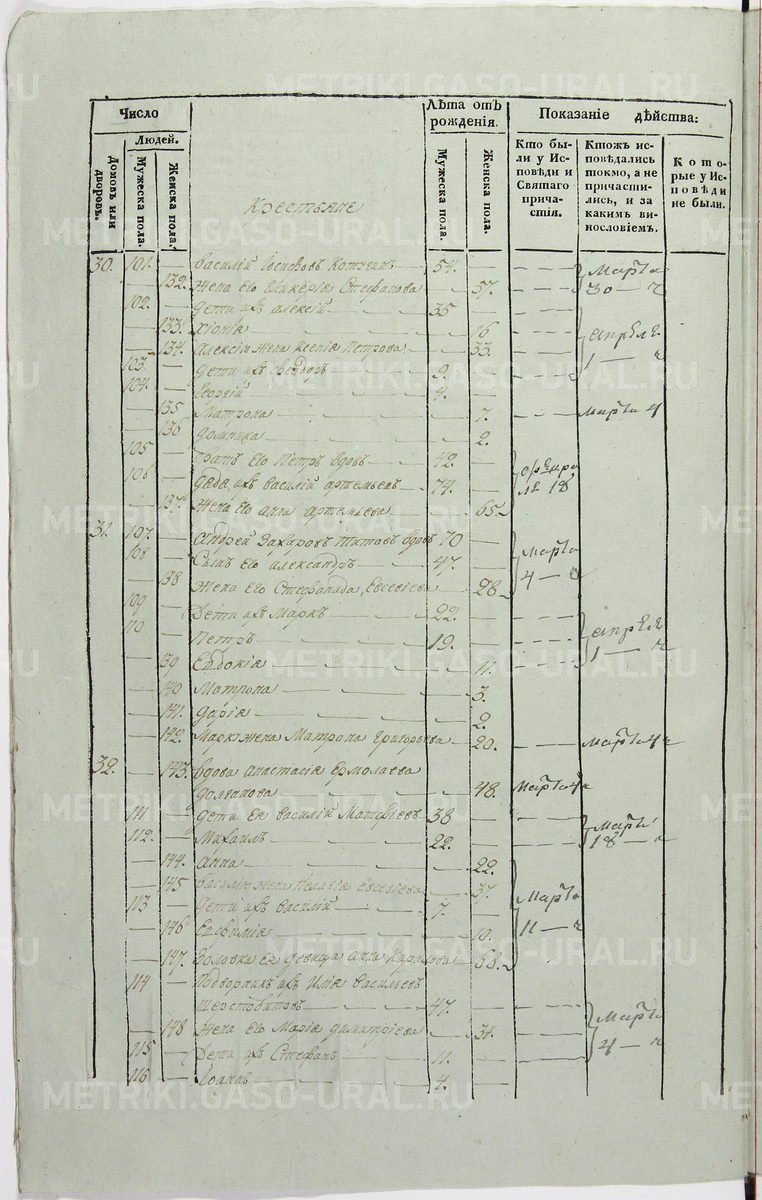 Число
Людей.
Домовъ или дворовъ.
Мужеска пола.
Женска пола.
Крестьяне
Лѣта отъ рожденія.
Мужеска пола.
Женска пола.
Показаніе дѣйства:
Кто бы-
ли у Ис-
повѣди и
Святаго
прича-
стія.
Ктожъ ис-
повѣдались
токмо, а не
причасти-
лись, и за
какимъ ви-
нословіемъ.
Кото-
рые у Ис-
повѣди
не были.
30. 101. — Василій Іосифовъ 54. — Марта
— 132. Жена его Гликерія Стефанова — 57. 30 — ч
102. — Дети ихъ Алексій 35 —
— 133. Хіонія — 16 апреля
— 134. Алексія жена Ксенія Петрова — 33. 1 — ч
103 — Дети ихъ Феодоръ 9. —
104. — Георгій 4. —
— 135 Матрона — 7. Марта 4
— 136 Домника — 2.
105 — Братъ его Петръ вдовъ 42. —
106 — Дядя ихъ Василій Артемьевъ 74. — февра
ля 18
— 137. Жена его Анна Артемьева — 65
31. 107. — Андрей Захаровъ Титовъ вдовъ 70 — Марта
108 — Сынъ его Александръ 47. — 4 — ч
— 138 Жена его Стефанида Евсевіева — 28
109 — Дети ихъ Маркъ 22. — апреля
110 — Петръ 19. — 1 — ч
— 139 Евдокія — 11.
— 140 Матрона — 3.
— 141. Дарія — 2.
— 142. Марка жена Матрона Григорьева — 20. Марта 4 ч
32. — 143. Вдова Анастасія Ермолаева
Долганова — 48. Марта 4 ч
111 — Дети ея Василій Матфіевъ 38 — Марта
112. — Михаилъ 22. — 18 — ч
— 144. Анна — 22.
— 145 Василія жена Пелагія Евсевіева — 37. Марта
113 — Дети ихъ Василій 7. — 11 — ч
— 146 Евфимія — 10.
— 147. Золовка ея девица Анна — 68.
114 — Подворникъ ихъ Илія Васильевъ
Шерстобитовъ 47. — Марта
— 148 Жена его Марія Димитріева — 34. 4 — ч
115 — Дети ихъ Стефанъ 11. —
116 — Іоаннъ 4. —
METRIKI.GASO-URAL.RU